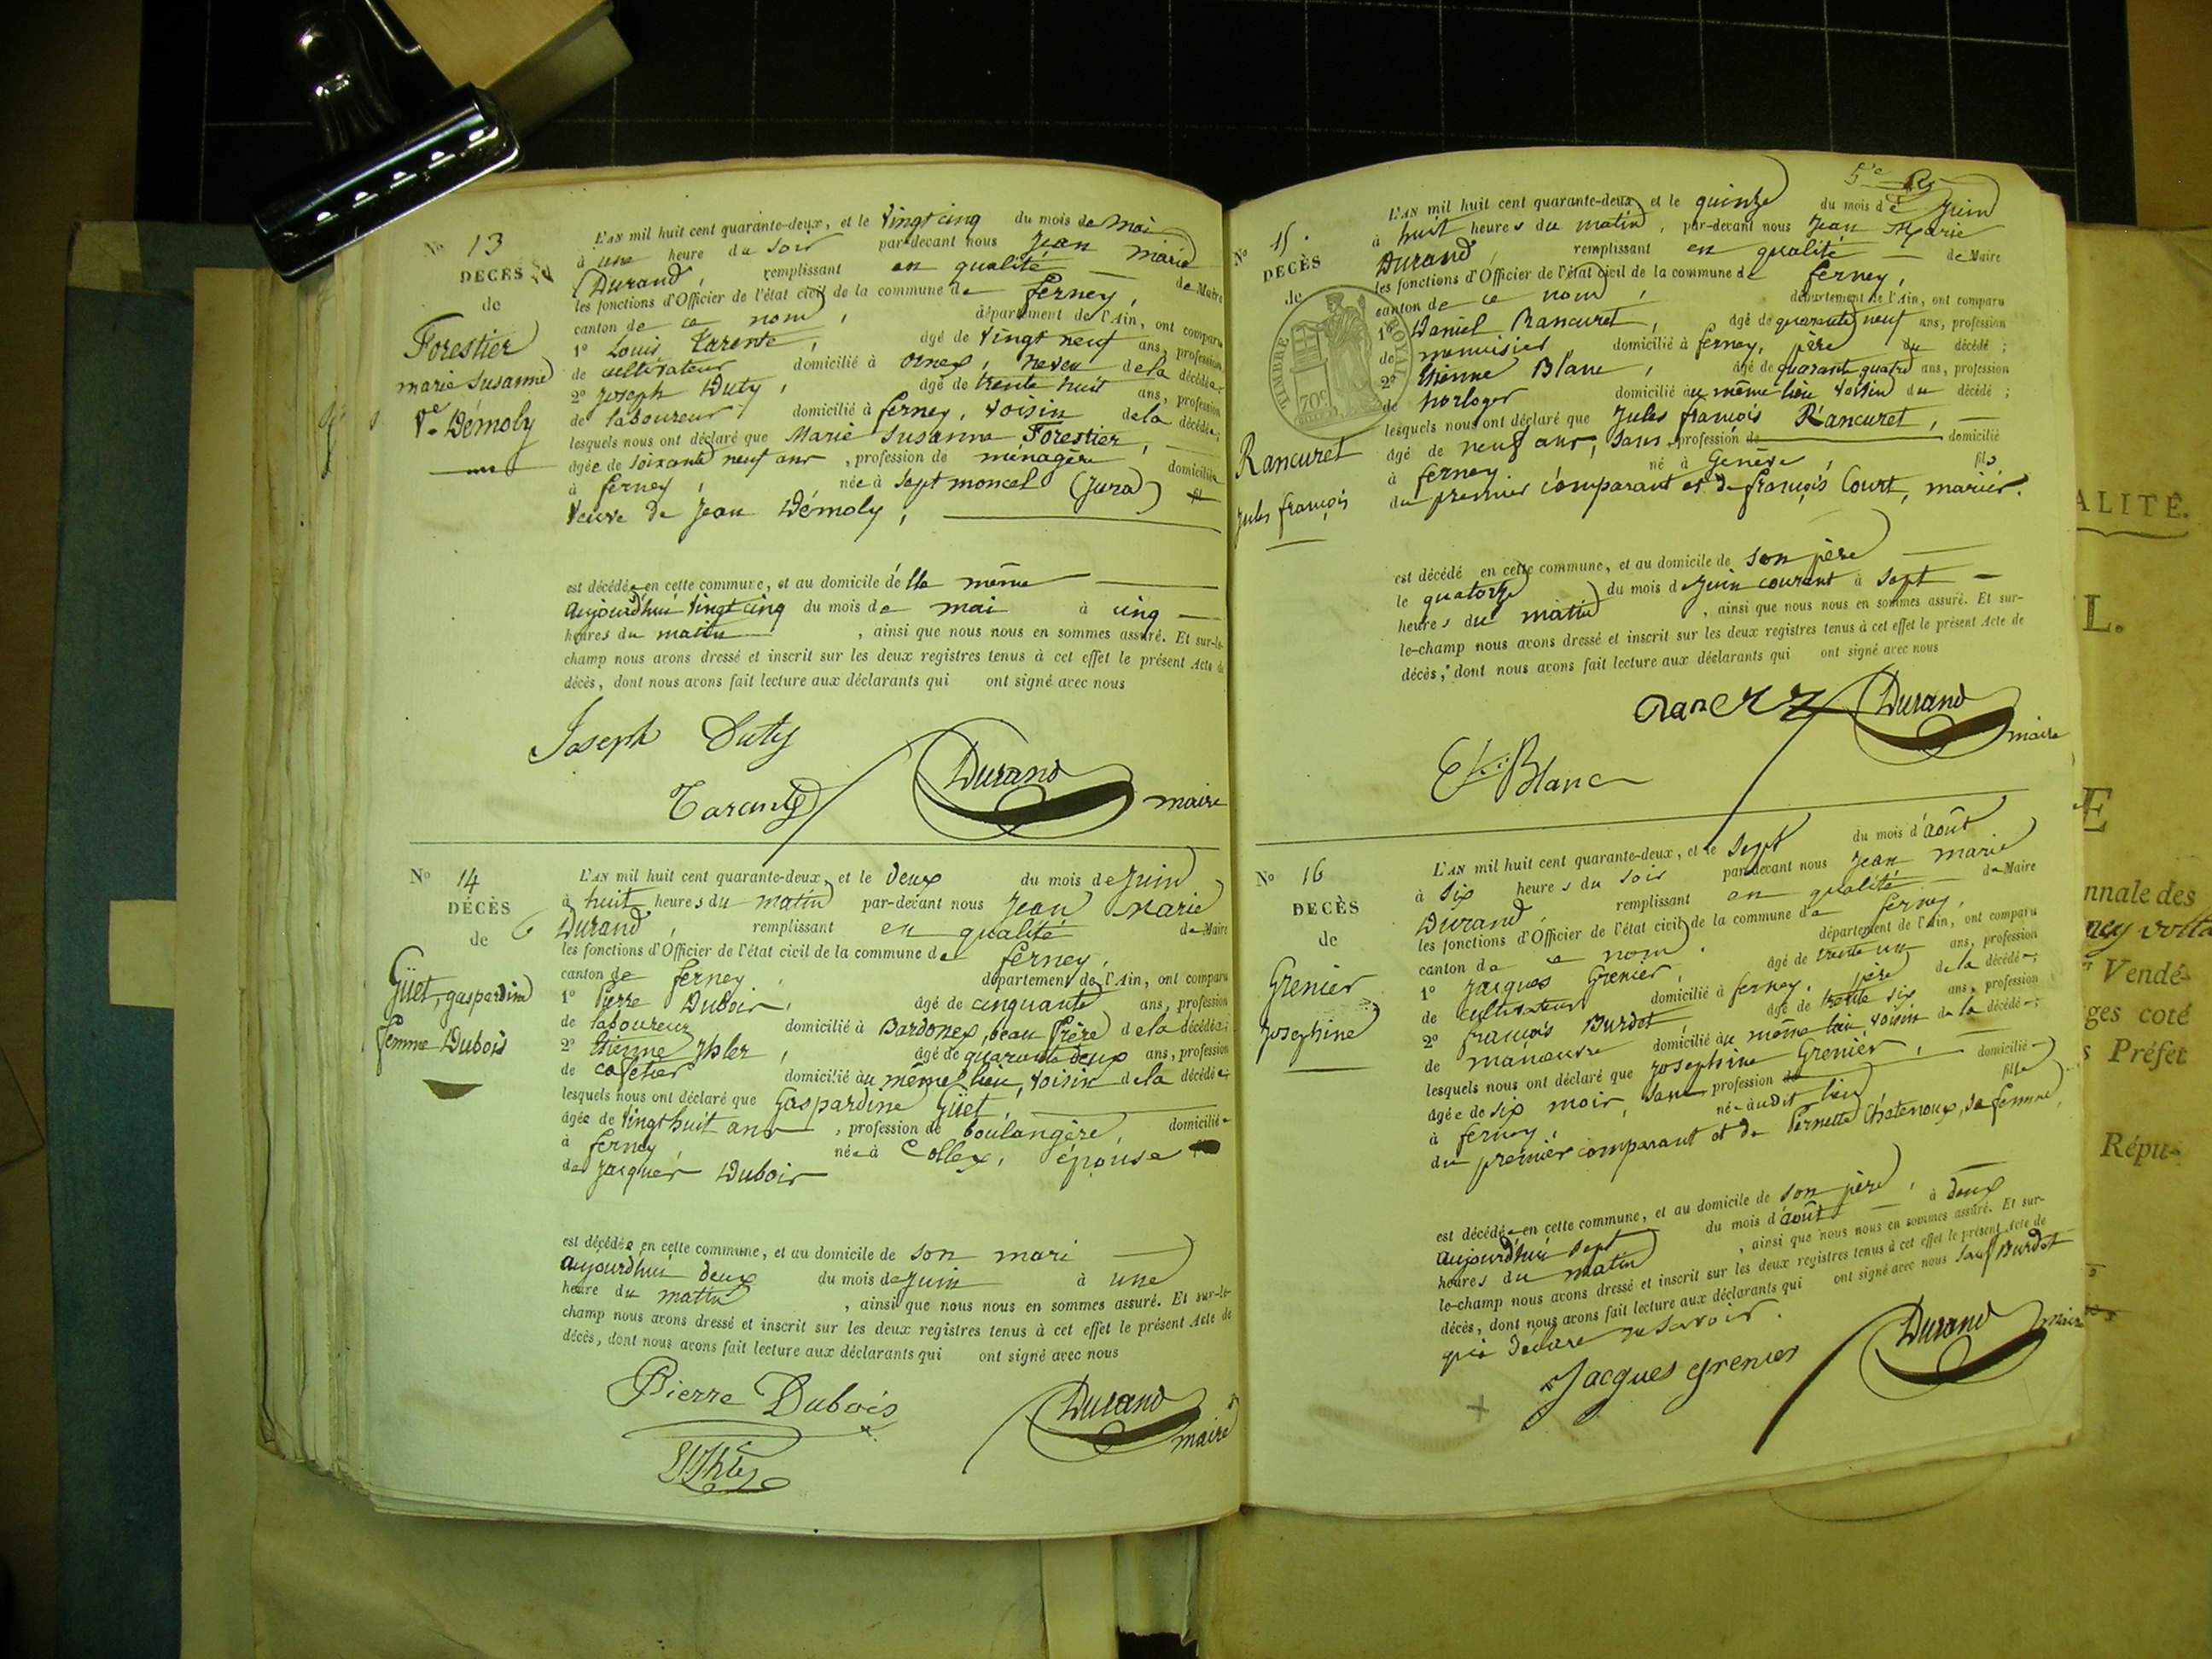 Nº 13
DÉCÈS
de
Forestier
marie Susanne
Ve Démoly
L'AN mil huit cent quarante-deux, et le vingt cinq du mois de Mai
à une heure du soir par-devant nous Jean Marie
Durand, remplissant en qualité de Maire
les fonctions d'Officier de l'état civil de la commune de ferney,
canton de ce nom, département de l'Ain, ont comparu
1º Louis Tarente, âgé de vingt neuf ans, profession
de cultivateur domicilié à ornex, neveu de la décédée
2º Joseph Duty, âgé de trente huit ans, profession
de laboureur domicilié à ferney, voisin de la décédée;
lesquels nous ont déclaré que Marie Susanne Forestier,
âgée de soixante neuf ans, profession de ménagère domiciliée
à ferney, née à Sept moncel (Jura)
veuve de Jean Démoly,
est décédée en cette commune, et au domicile d'elle même
aujourd'hui vingt cinq du mois de mai à cinq
heures du matin, ainsi que nous nous en sommes assuré. Et sur-le-
champ nous avons dressé et inscrit sur les deux registres tenus à cet effet le présent Acte de
décès, dont nous avons fait lecture aux déclarants qui ont signé avec nous
Joseph Duty
Tarente Durand maire
Nº 14
DÉCÈS
de
Güet, gaspardine
femme Dubois
L'AN mil huit cent quarante-deux, et le deux du mois de Juin
à huit heures du matin par-devant nous Jean Marie
Durand, remplissant en qualité de Maire
les fonctions d'Officier de l'état civil de la commune de ferney,
canton de ferney, département de l'Ain, ont comparu
1º Pierre Dubois, âgé de cinquante ans, profession
de laboureur domicilié à Bardonex, beau frère de la décédée;
2º Etienne Yhler, âgé de quarante deux ans, profession
de cafetier domicilié au même lieu, voisin de la décédée;
lesquels nous ont déclaré que Gaspardine Güet,
âgée de vingt huit ans, profession de boulangère, domiciliée
à ferney née à Collex, épouse
de Jacques Dubois
est décédée en cette commune, et au domicile de son mari
aujourd'hui deux du mois de Juin à une
heure du matin, ainsi que nous nous en sommes assuré. Et sur-le-
champ nous avons dressé et inscrit sur les deux registres tenus à cet effet le présent Acte de
décès, dont nous avons fait lecture aux déclarants qui ont signé avec nous
Pierre Dubois Durand
maire
5e
Nº 15.
DÉCÈS
de
TIMBRE ROYAL
70c
Rancuret
Jules françois
L'AN mil huit cent quarante-deux et le quinze du mois de Juin
à huit heures du matin, par-devant nous Jean Marie
Durand, remplissant en qualité de Maire
les fonctions d'Officier de l'état civil de la commune de ferney,
canton de ce nom, département de l'Ain, ont comparu
1º Daniel Rancuret, âgé de quarante neuf ans, profession
de menuisier domicilié à ferney, père du décédé;
2º Etienne Blanc, âgé de quarante quatre ans, profession
de horloger domicilié au même lieu voisin du décédé;
lesquels nous ont déclaré que Jules françois Rancuret,
âgé de neuf ans, sans profession de domicilié
à ferney né à Genève, fils
du premier comparant et de françois Court, mariés.
est décédé en cette commune, et au domicile de son père
le quatorze du mois de Juin courant à sept
heures du matin, ainsi que nous nous en sommes assuré. Et sur-
le-champ nous avons dressé et inscrit sur les deux registres tenus à cet effet le présent Acte de
décès, dont nous avons fait lecture aux déclarants qui ont signé avec nous
Durand
maire
Blanc
Nº 16
DÉCÈS
de
Grenier
Josephine
L'AN mil huit cent quarante-deux, et le sept du mois d'août
à six heures du soir par-devant nous Jean marie
Durand, remplissant en qualité de Maire
les fonctions d'Officier de l'état civil de la commune de ferney,
canton de ce nom. département de l'Ain, ont comparu
1º Jacques Grenier, âgé de trente un ans, profession
de cultivateur domicilié à ferney, père de la décédée;
2º françois Burdet, âgé de trente six ans, profession
de manœuvre domicilié au même lieu, voisin de la décédée;
lesquels nous ont déclaré que Josephine Grenier,
âgée de six mois, sans profession de domiciliée
à ferney, née audit lieu fille
du premier comparant et de Pernette Chatenoux, sa femme,
est décédée en cette commune, et au domicile de son père,
aujourd'hui sept du mois d'août à deux
heures du matin, ainsi que nous nous en sommes assuré. Et sur-
le-champ nous avons dressé et inscrit sur les deux registres tenus à cet effet le présent Acte de
décès, dont nous avons fait lecture aux déclarants qui ont signé avec nous sauf Burdet
qui a déclaré ne savoir.
Jacques Grenier Durand maire
ALITÉ.
L.
E
nnale des
Vendé-
ges coté
Préfet
Répu-